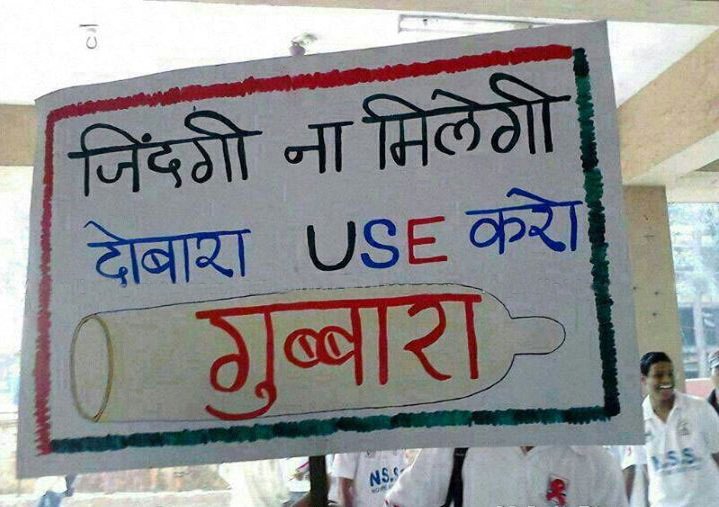 जिंदगी ना मिलेगी
दोबारा USE करो
गुब्बारा
N.S.S.
N.S.S.